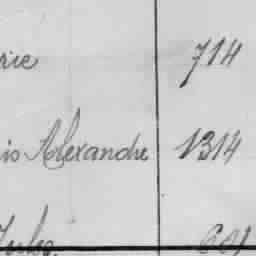 rie 714
is Alexandre 1314
Jules. 601